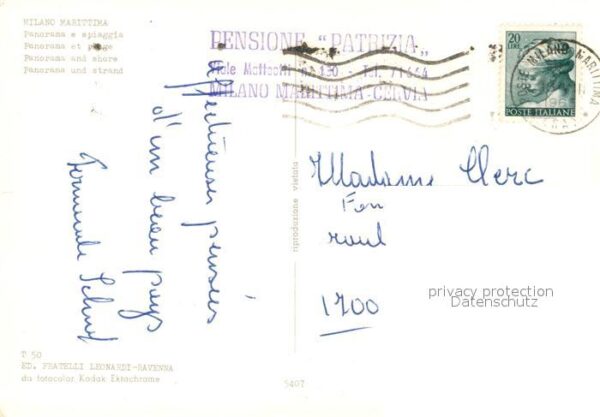 MILANO MARITTIMA
Panorama e spiaggia
Panorama et plage
Panorama and shore
Panorama und strand
PENSIONE "PATRIZIA"
Viale Matteotti n. 130 - Tel. 71
MILANO MARITTIMA-CERVIA
20
LIRE
POSTE ITALIANE
MILANO MARITTIMA
affectueuses pensées
d'un beau pays
Fernande
Madame Clerc
1700
privacy protection
Datenschutz
riproduzione vietata
T 50
ED. FRATELLI LEONARDI-RAVENNA
da fotocolor Kodak Ektachrome
5407